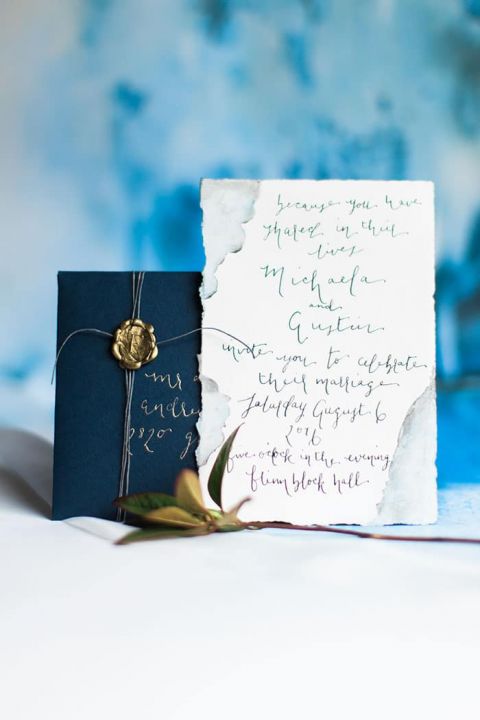 because you have
shared in their
lives
Michaela
and
invite you to celebrate
their marriage
Saturday August 6
2016
five o'clock in the evening
flinn block hall
mr a
andre
2820 g